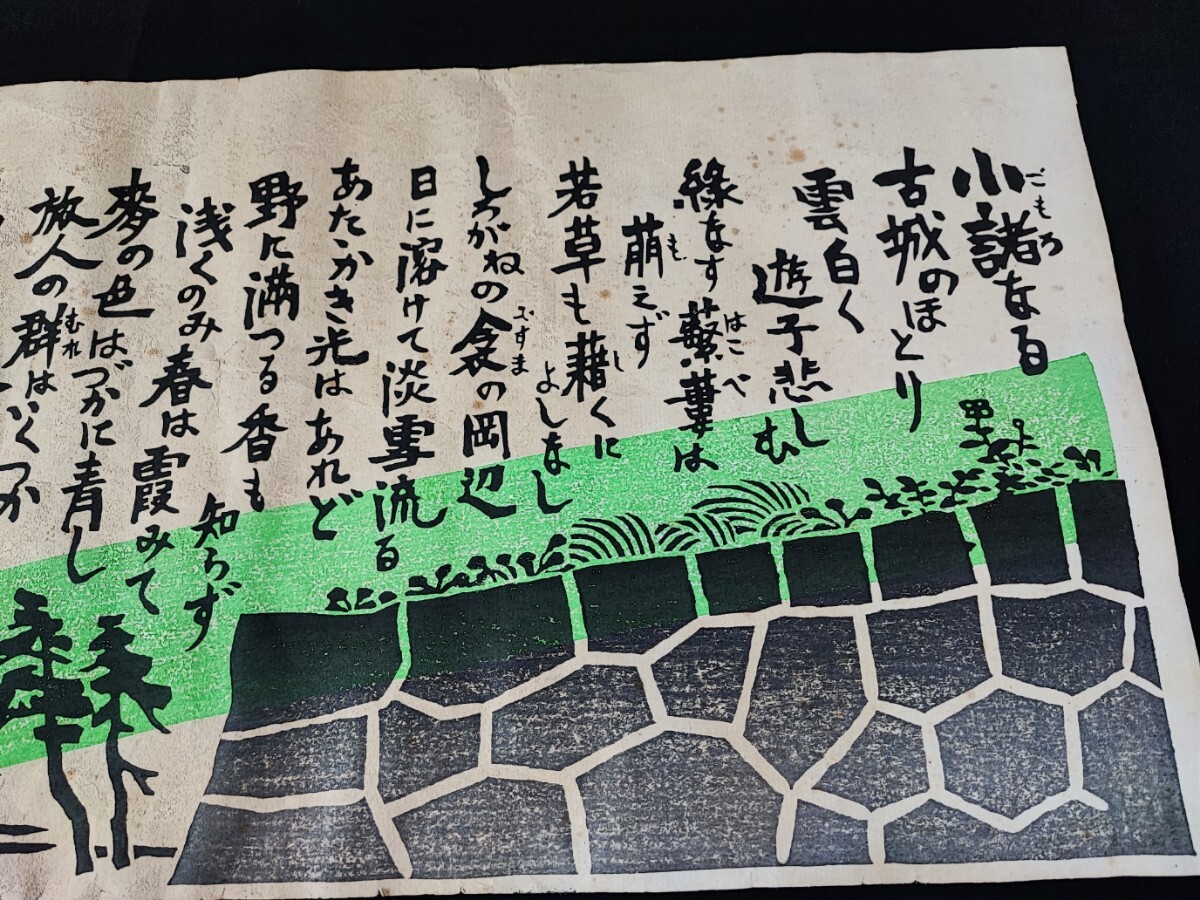 小諸なる
こもろ
古城のほとり
雲白く
遊子悲しむ
緑なす蘩蔞は
はこべ
萌えず
も
若草も藉くに
し
よしなし
しろがねの衾の岡辺
ふすま
日に溶けて淡雪流る
あたゝかき光はあれど
野に満つる香も
知らず
浅くのみ春は霞みて
麥の色はづかに青し
旅人の群はいくつか
むれ